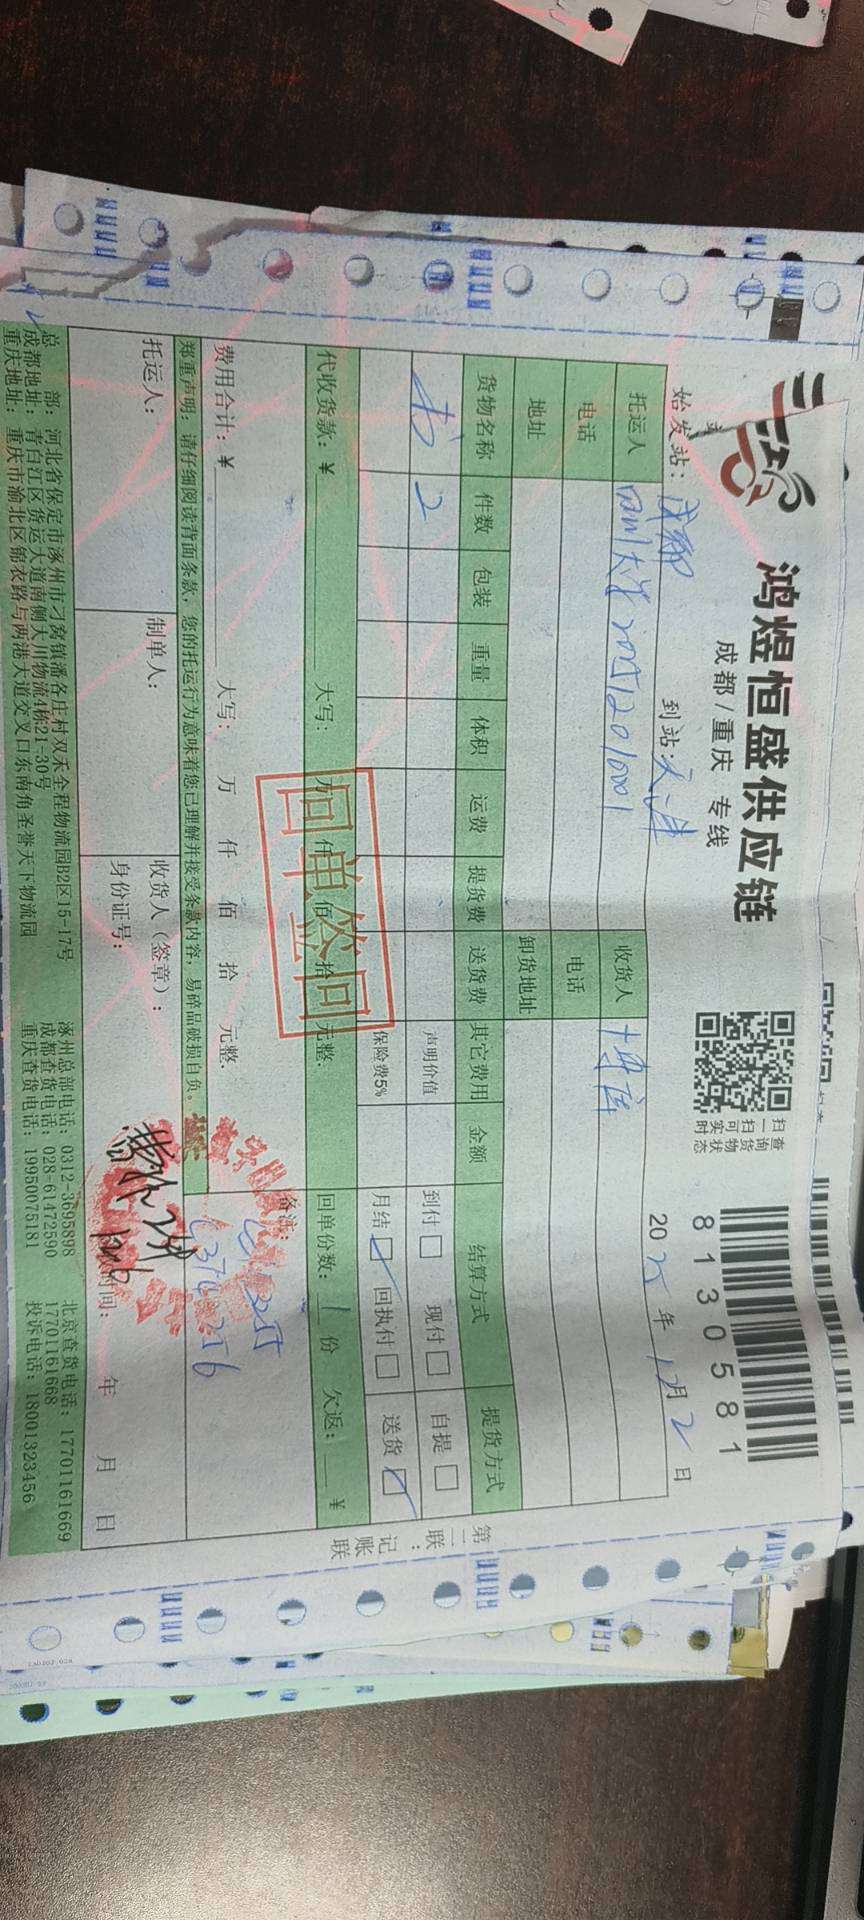 鸿煜恒盛供应链
成都/重庆 专线
扫一扫可实时
查询货物状态
81305811
始发站：成都 到站：天津 2025年12月2日
托运人 四川大学 202512010001 收货人 博库
电话 电话
地址 卸货地址
货物名称 件数 包装 重量 体积 运费 提货费 送货费 其它费用 金额 结算方式 提货方式
书 2 声明价值 到付 现付 自提
保险费5% 月结 回执付 送货
代收货款：¥ 大写： 万 仟 佰 拾 元整. 回单份数：1份 欠返： ¥
回单签回
费用合计：¥ 大写： 万 仟 佰 拾 元整. 备注：
郑重声明：请仔细阅读背面条款，您的托运行为意味着您已理解并接受条款内容，易碎品破损自负。
托运人： 制单人： 收货人（签章）：
身份证号： 时间： 年 月 日
总 部：河北省保定市涿州市刁窝镇潘各庄村双禾全程物流园B2区15-17号 涿州总部电话：0312-3695898 北京查货电话：17701161669
成都地址：青白江区货运大道南侧大川物流4栋21-30号 成都查货电话：028-61472590 17701161668
重庆地址：重庆市渝北区锦衣路与两港大道交叉口东南角圣誉天下物流园 重庆查货电话：19950075181 投诉电话：18001323456
第二联：记账联